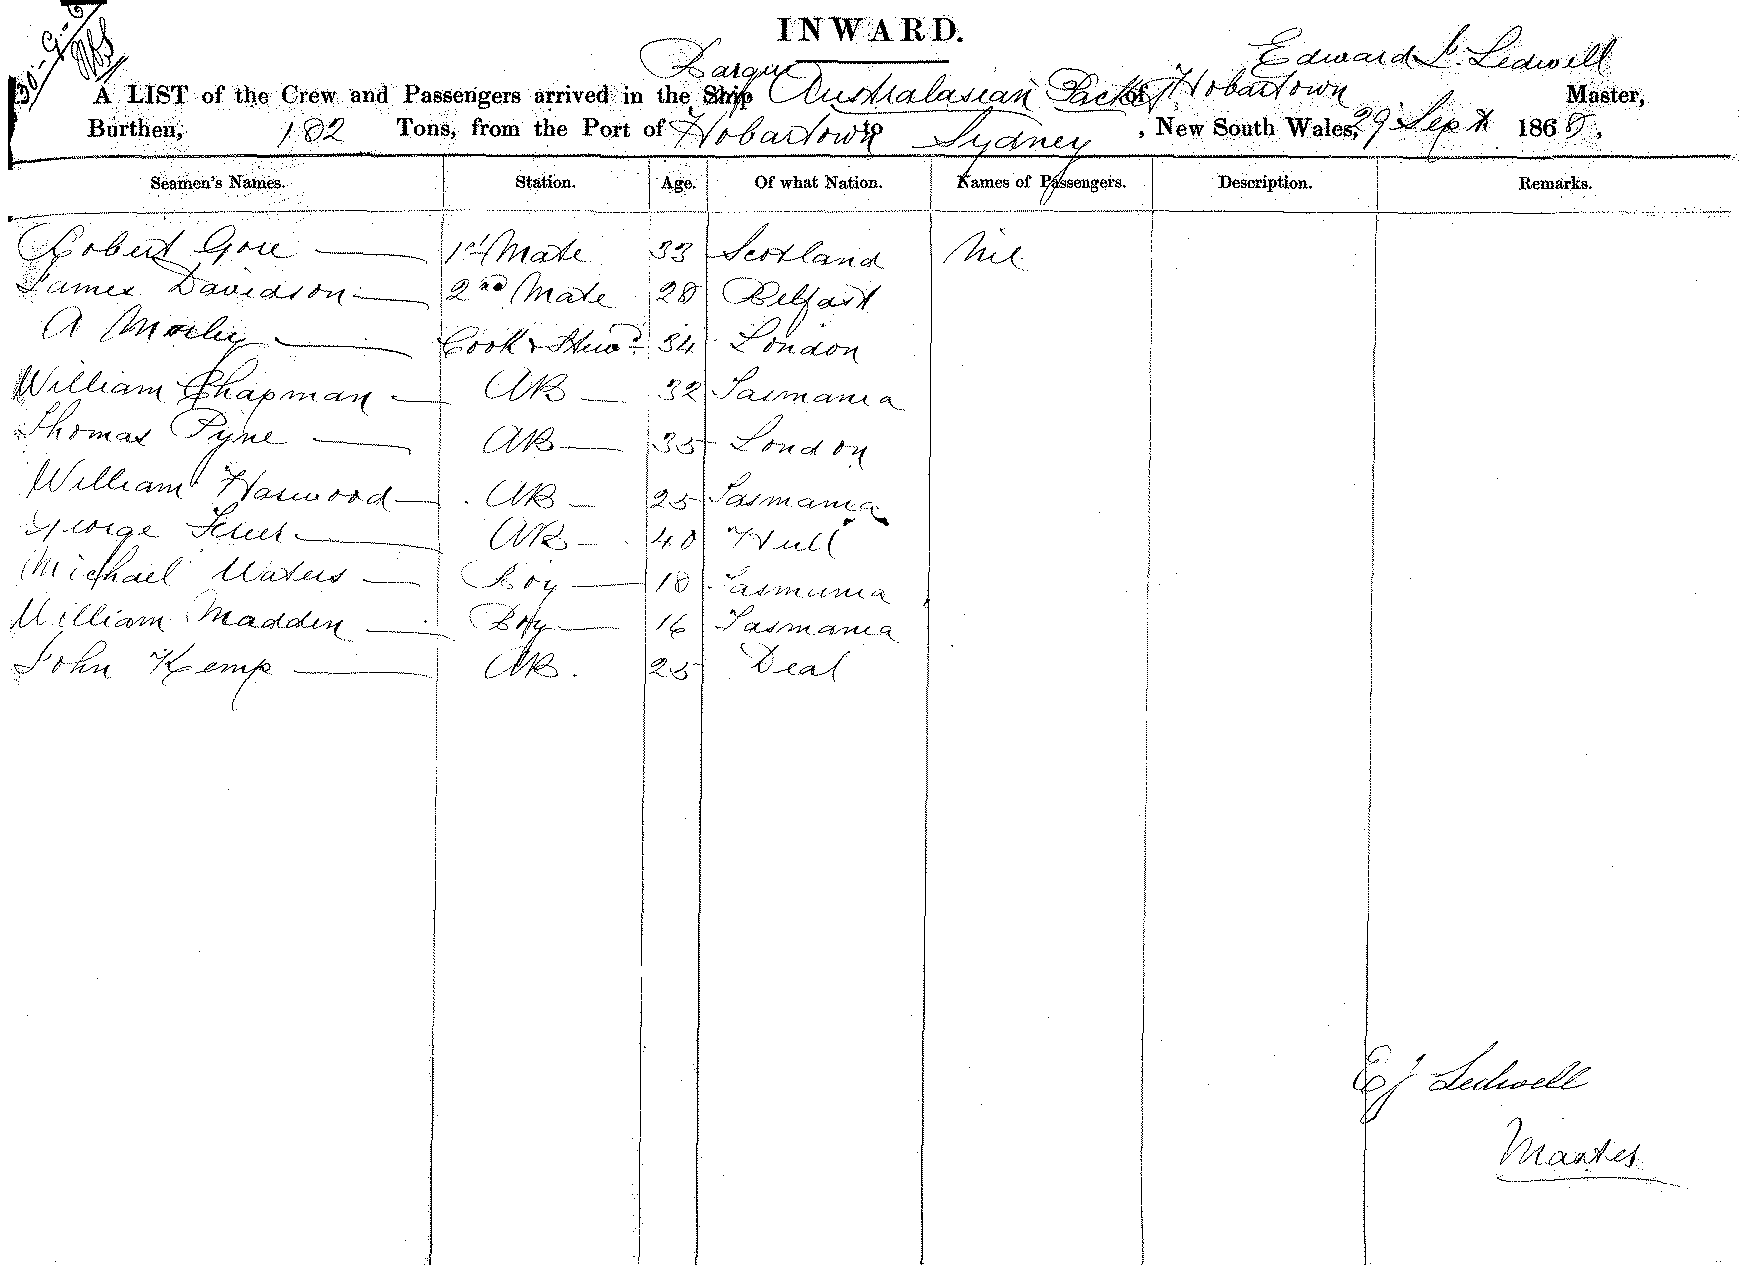 30-9-6
INWARD.
Barque Edward J. Ledwell
A LIST of the Crew and Passengers arrived in the Ship Australasian Packet of Hobartown Master,
Burthen, 182 Tons, from the Port of Hobartown to Sydney, New South Wales, 29 Sept 1868,
Seamen's Names. Station. Age. Of what Nation. Names of Passengers. Description. Remarks.
Robert Gore 1st Mate 33 Scotland Nil
James Davidson 2nd Mate 28 Belfast
A Cook & Stewd 34 London
William Chapman AB 32 Tasmania
Thomas Pyne AB 35 London
William Harwood AB 25 Tasmania
George AB 40 Hull
Michael Waters Boy 18 Tasmania
William Madden Boy 16 Tasmania
John Kemp AB. 25 Deal
EJ Ledwell
Master